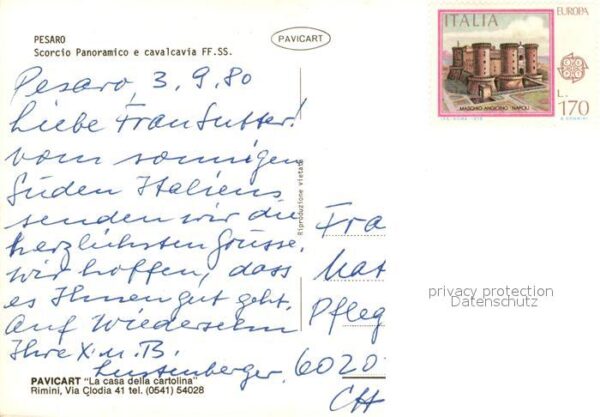 PESARO
Scorcio Panoramico e cavalcavia FF.SS.
PAVICART
Pesaro, 3.9.80
Liebe Frau Sutter!
vom sonnigen
Süden Italiens
senden wir die
herzlichsten Grüsse.
wir hoffen, dass
es Ihnen gut geht.
Auf Wiedersehn
Ihre X. u. B.
Lustenberger.
PAVICART "La casa della cartolina"
Rimini, Via Clodia 41 tel. (0541) 54028
Riproduzione vietata
ITALIA
EUROPA
L. 170
MASCHIO ANGIOINO NAPOLI
Fra
Mat
Pfleg
6020
CH
privacy protection
Datenschutz